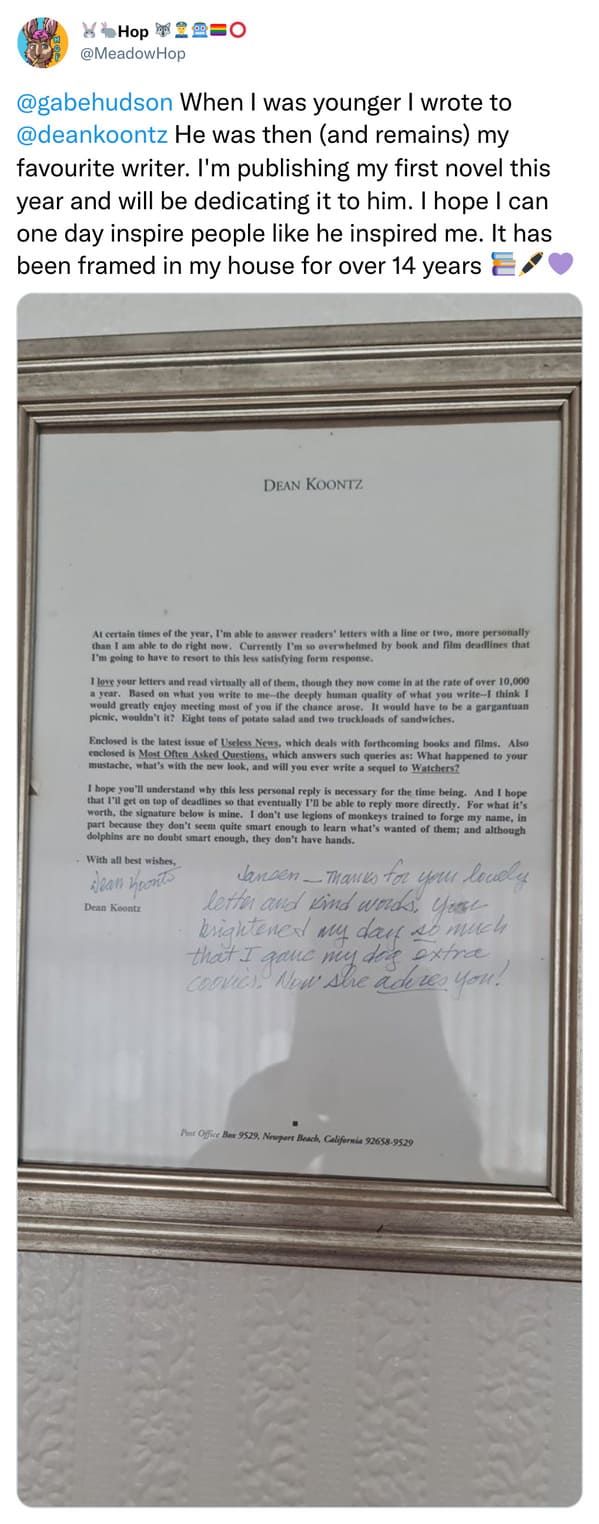 Hop
@MeadowHop
@gabehudson When I was younger I wrote to
@deankoontz He was then (and remains) my
favourite writer. I'm publishing my first novel this
year and will be dedicating it to him. I hope I can
one day inspire people like he inspired me. It has
been framed in my house for over 14 years
DEAN KOONTZ
At certain times of the year, I'm able to answer readers' letters with a line or two, more personally
than I am able to do right now. Currently I'm so overwhelmed by book and film deadlines that
I'm going to have to resort to this less satisfying form response.
I love your letters and read virtually all of them, though they now come in at the rate of over 10,000
a year. Based on what you write to me--the deeply human quality of what you write--I think I
would greatly enjoy meeting most of you if the chance arose. It would have to be a gargantuan
picnic, wouldn't it? Eight tons of potato salad and two truckloads of sandwiches.
Enclosed is the latest issue of Useless News, which deals with forthcoming books and films. Also
enclosed is Most Often Asked Questions, which answers such queries as: What happened to your
mustache, what's with the new look, and will you ever write a sequel to Watchers?
I hope you'll understand why this less personal reply is necessary for the time being. And I hope
that I'll get on top of deadlines so that eventually I'll be able to reply more directly. For what it's
worth, the signature below is mine. I don't use legions of monkeys trained to forge my name, in
part because they don't seem quite smart enough to learn what's wanted of them; and although
dolphins are no doubt smart enough, they don't have hands.
With all best wishes,
Dean Koontz
Dean Koontz
Jansen — Thanks for your lovely
letter and kind words. You
brightened my day so much
that I gave my dog extra
cookies. Now she adores you!
Post Office Box 9529, Newport Beach, California 92658-9529